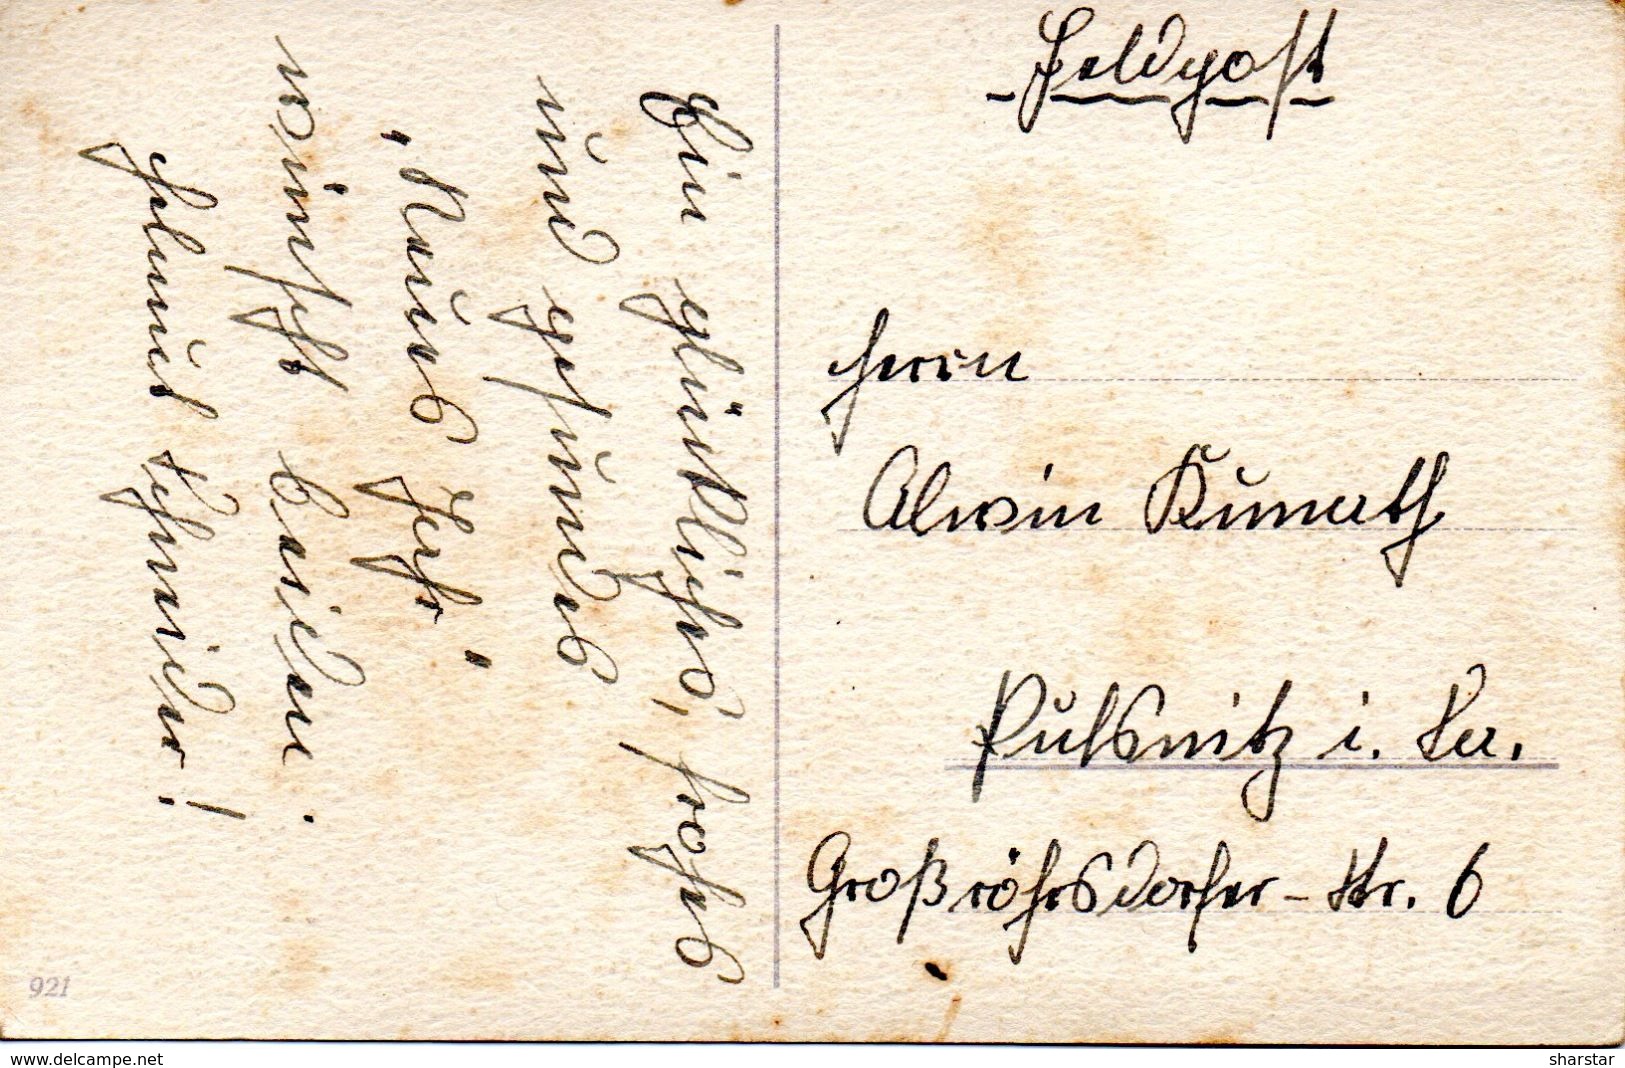 Feldpost
Herrn
Alwin Kunath
Pulsnitz i. Sa.
Großröhrsdorfer-Str. 6
Ein glückliches, frohes
und gesundes
"Neues Jahr"
wünscht beiden.
Helmut Schneider!
921
www.delcampe.net
sharstar